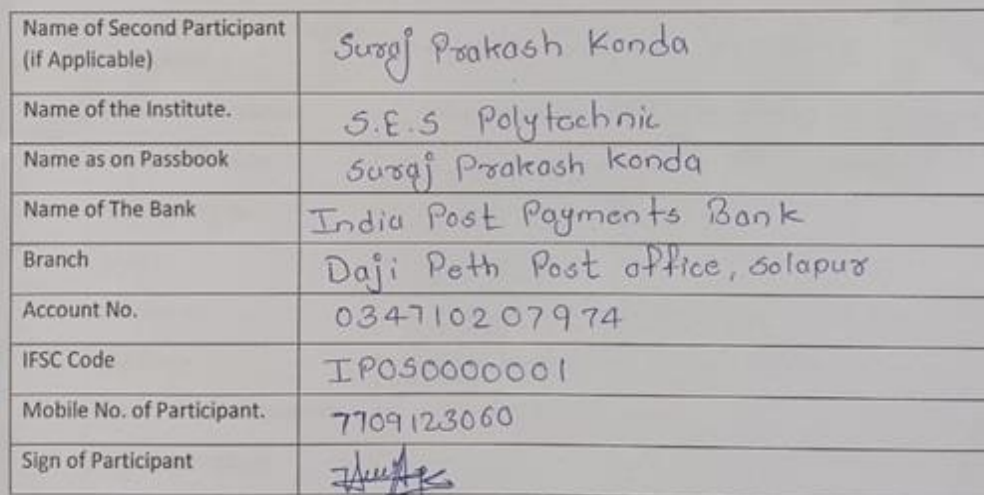 Name of Second Participant
(if Applicable)
Suraj Prakash Konda
Name of the Institute.
S.E.S Polytechnic
Name as on Passbook
Suraj Prakash Konda
Name of The Bank
India Post Payments Bank
Branch
Daji Peth Post office, Solapur
Account No.
034710207974
IFSC Code
IPOS0000001
Mobile No. of Participant.
7709123060
Sign of Participant